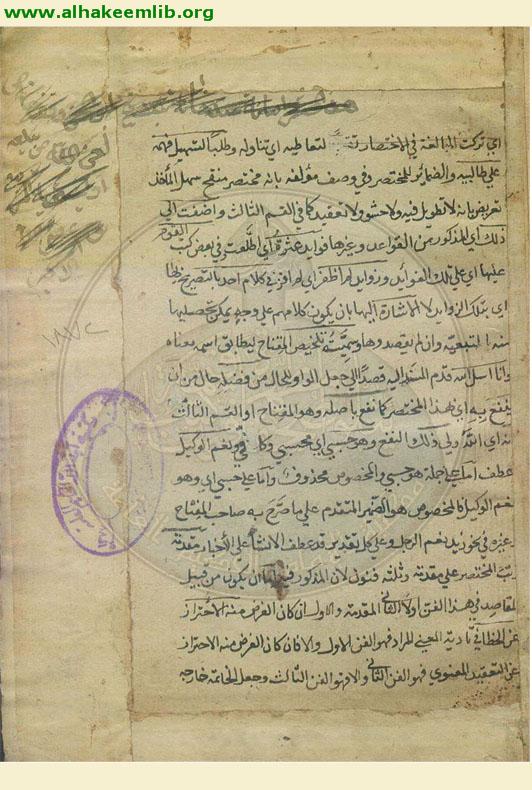 www.alhakeemlib.org
اي تركت المبالغة في الاختصار تقريبا لتعاطيه اي تناوله وطلبا لتسهيل فهمه
على طالبيه والضمائر للمختصر وفي وصف مؤلفه بانه مختصر منقح سهل المأخذ
تعريض بانه لا تطويل فيه ولا حشو ولا تعقيد كما في القسم الثالث واضفت الى
ذلك اي المذكور من القواعد وغيرها فوايد عثرت اي اطلعت في بعض كتب القوم
عليها اي على تلك الفوايد وزوايد لم اظفر اي لم افز في كلام احد بالتصريح بها
اي بتلك الزوايد ولا الاشارة اليها بان يكون كلامهم على وجه يمكن تحصيلها
منه بالتبعية وان لم يقصدوها وسميته تلخيص المفتاح ليطابق اسمه معناه
وانا اسأل الله قدم المسند اليه قصدا الى جعل الواو للحال من فضله حال من ان
ينفع به اي بهذا المختصر كما نفع باصله وهو المفتاح او القسم الثالث
منه اي الله ولي ذلك النفع وهو حسبي اي محسبي وكافي ونعم الوكيل
عطف اما على جملة هو حسبي والمخصوص محذوف واما على حسبي اي وهو
نعم الوكيل فالمخصوص هو الضمير المتقدم على ما صرح به صاحب المفتاح
وغيره في نحو زيد نعم الرجل وعلى كل تقدير قد عطف الانشا على الاخبار مقدمة
رتب المختصر على مقدمة وثلثة فنون لان المذكور فيه اما ان يكون من قبيل
المقاصد في هذا الفن اولا الثاني المقدمة والاول ان كان الغرض منه الاحتراز
عن الخطا في تادية المعنى المراد فهو الفن الاول والا فان كان الغرض منه الاحتراز
عن التعقيد المعنوي فهو الفن الثاني والا فهو الفن الثالث وجعل الخاتمة خارجة